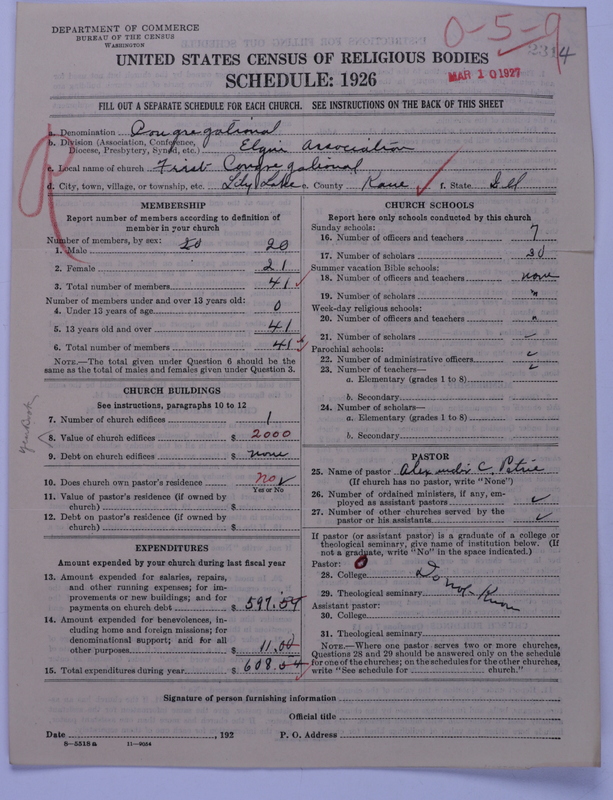 DEPARTMENT OF COMMERCE
BUREAU OF THE CENSUS
WASHINGTON
0-5-9
2314
MAR 10 1927
UNITED STATES CENSUS OF RELIGIOUS BODIES
SCHEDULE: 1926
FILL OUT A SEPARATE SCHEDULE FOR EACH CHURCH. SEE INSTRUCTIONS ON THE BACK OF THIS SHEET
a. Denomination Congregational
b. Division (Association, Conference, Diocese, Presbytery, Synod, etc.) Elgin Association
c. Local name of church First Congregational
d. City, town, village, or township, etc. Lily Lake e. County Kane f. State Ill
MEMBERSHIP
Report number of members according to definition of
member in your church
Number of members, by sex:
1. Male 20
2. Female 21
3. Total number of members 41
Number of members under and over 13 years old:
4. Under 13 years of age 0
5. 13 years old and over 41
6. Total number of members 41
NOTE.—The total given under Question 6 should be the
same as the total of males and females given under Question 3.
CHURCH BUILDINGS
See instructions, paragraphs 10 to 12
7. Number of church edifices 1
Yearbook
8. Value of church edifices $ 2000
9. Debt on church edifices $ none
10. Does church own pastor's residence No
Yes or No
11. Value of pastor's residence (if owned by
church) $
12. Debt on pastor's residence (if owned by
church) $
EXPENDITURES
Amount expended by your church during last fiscal year
13. Amount expended for salaries, repairs,
and other running expenses; for im-
provements or new buildings; and for
payments on church debt $ 597.54
14. Amount expended for benevolences, in-
cluding home and foreign missions; for
denominational support; and for all
other purposes $ 11.00
15. Total expenditures during year $ 608.54
CHURCH SCHOOLS
Report here only schools conducted by this church
Sunday schools:
16. Number of officers and teachers 7
17. Number of scholars 30
Summer vacation Bible schools:
18. Number of officers and teachers none
19. Number of scholars "
Week-day religious schools:
20. Number of officers and teachers "
21. Number of scholars
Parochial schools:
22. Number of administrative officers
23. Number of teachers—
a. Elementary (grades 1 to 8)
b. Secondary
24. Number of scholars—
a. Elementary (grades 1 to 8)
b. Secondary
PASTOR
25. Name of pastor Alexander C. Petrie
(If church has no pastor, write "None")
26. Number of ordained ministers, if any, em-
ployed as assistant pastors
27. Number of other churches served by the
pastor or his assistants
If pastor (or assistant pastor) is a graduate of a college or
theological seminary, give name of institution below. (If
not a graduate, write "No" in the space indicated.)
Pastor:
28. College Do not Know
29. Theological seminary
Assistant pastor:
30. College
31. Theological seminary
NOTE.—Where one pastor serves two or more churches,
Questions 28 and 29 should be answered only on the schedule
for one of the churches; on the schedules for the other churches,
write "See schedule for church."
Signature of person furnishing information
Official title
Date , 192 P. O. Address
8-5518 a 11-9054